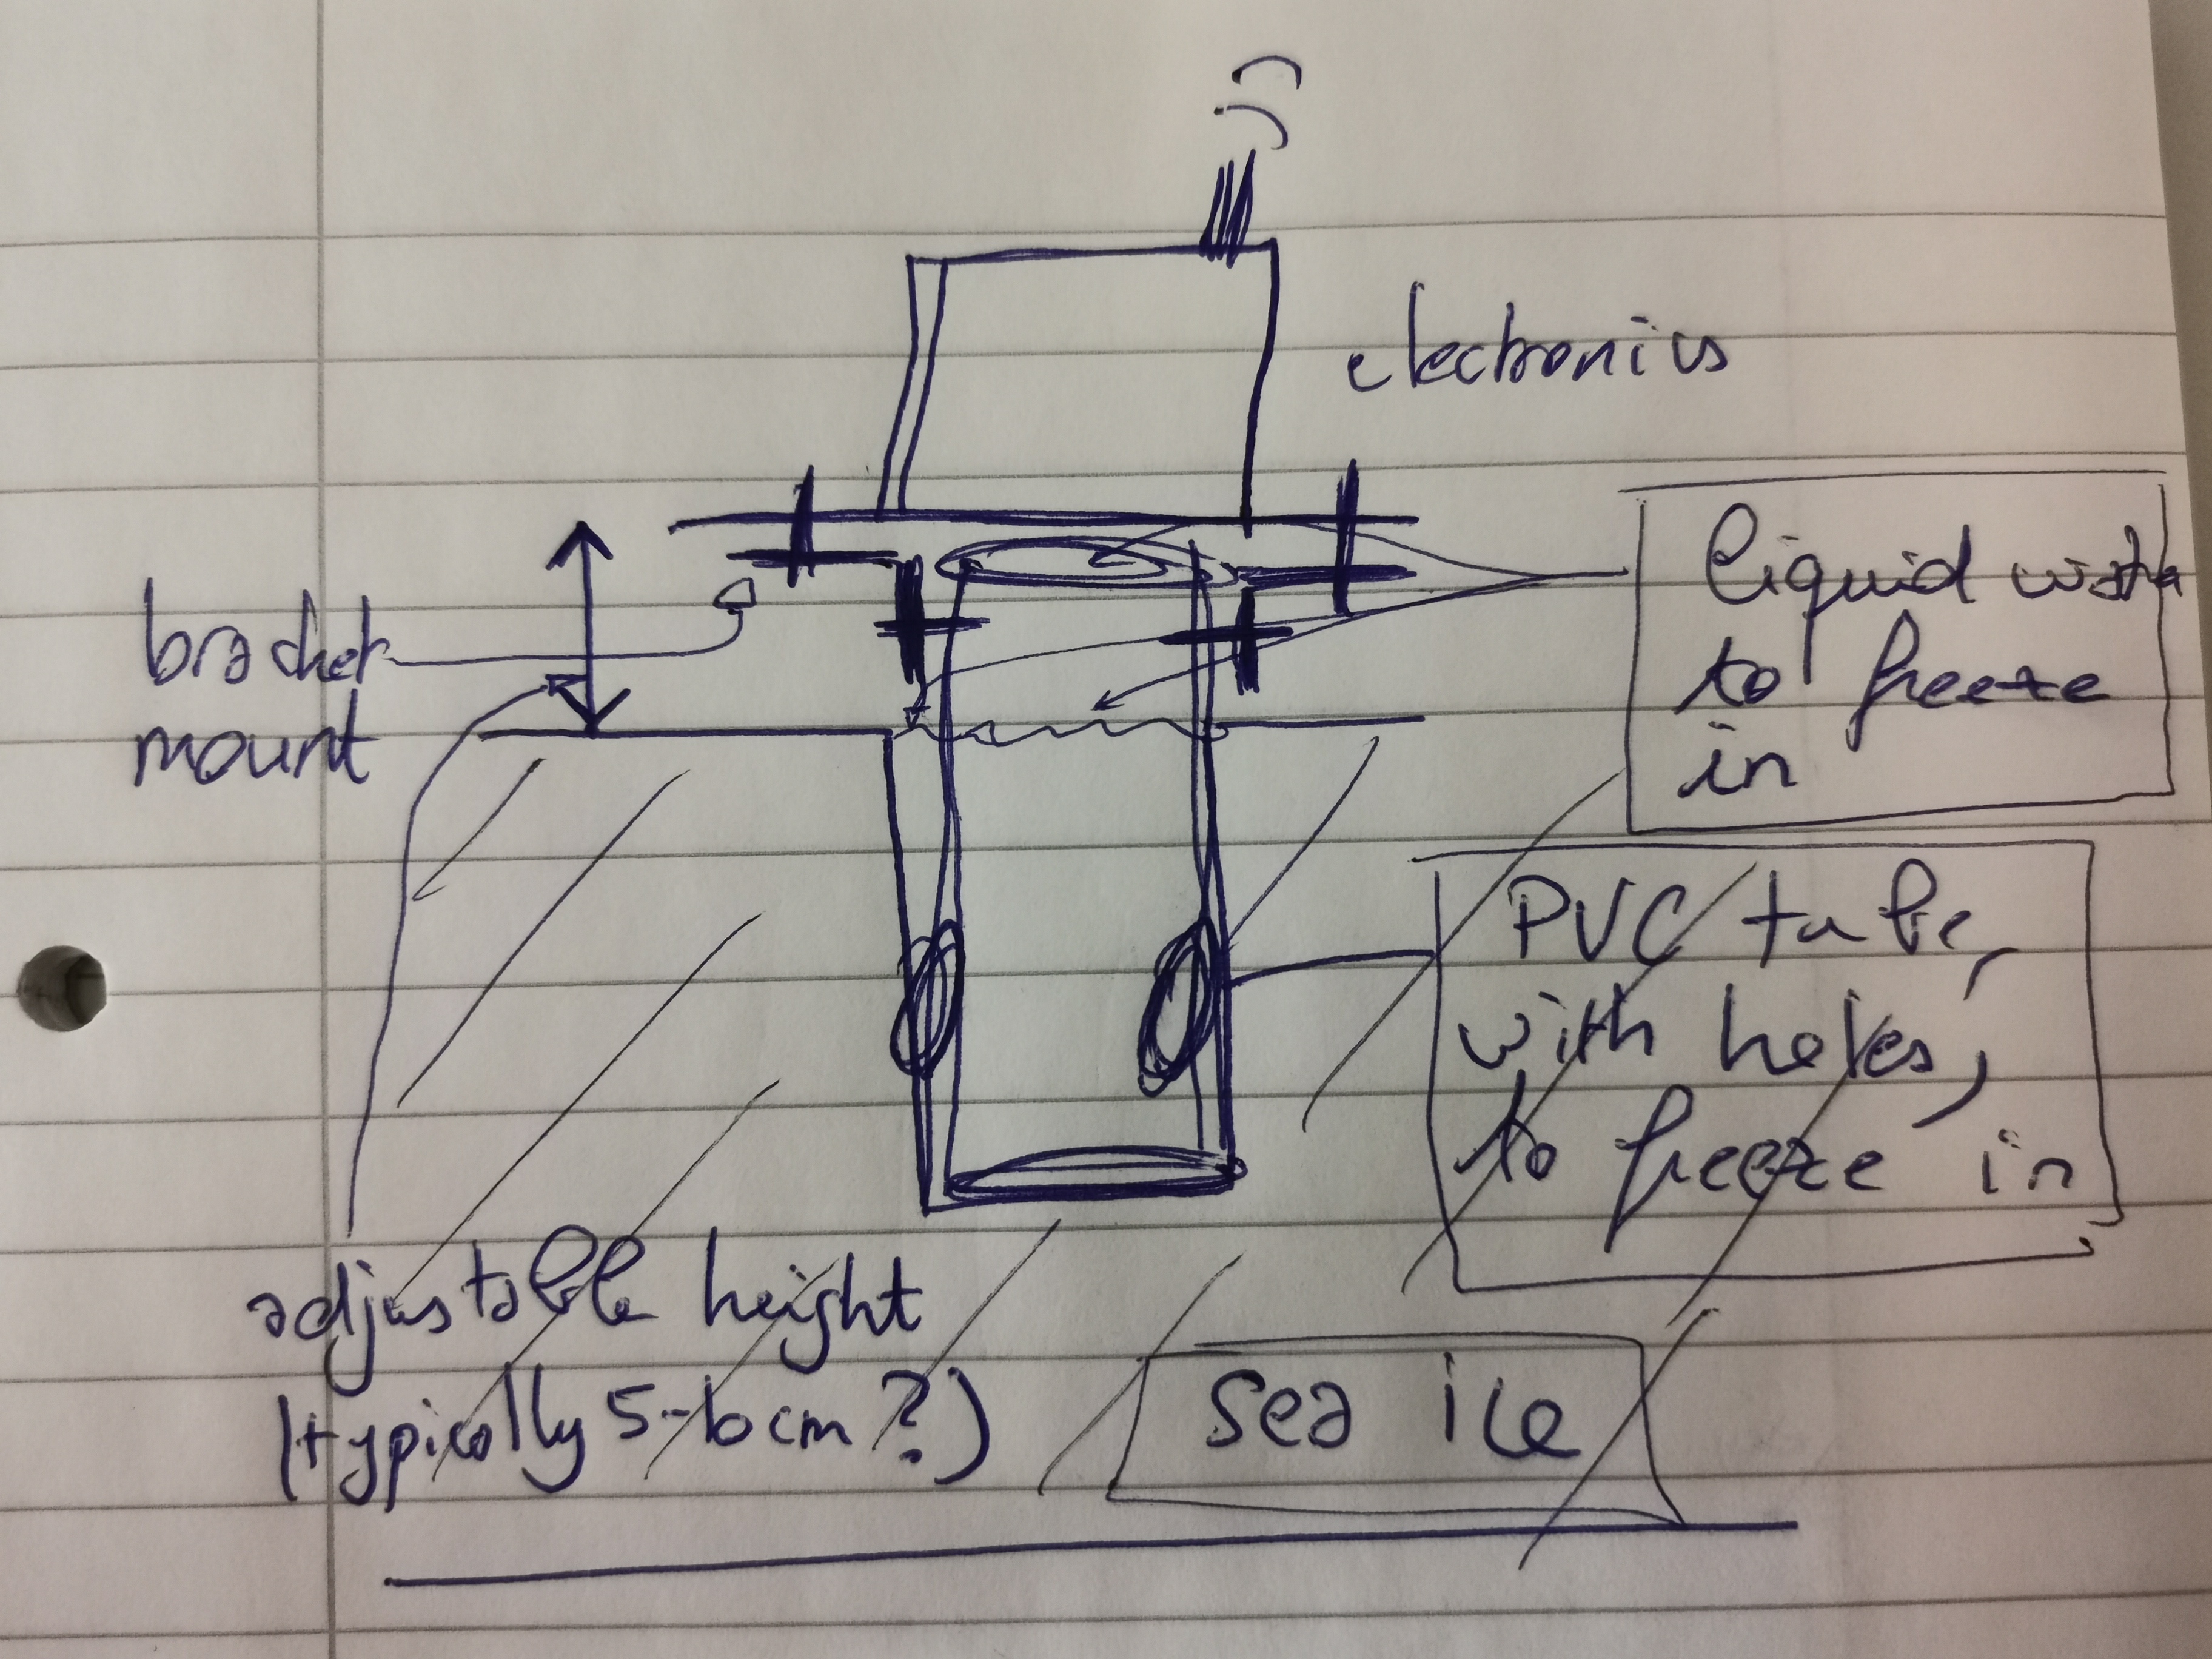 electronics
liquid water
to freeze
in
bracket
mount
PVC tube,
with holes,
to freeze in
adjustable height
(typically 5-10cm?)
sea ice